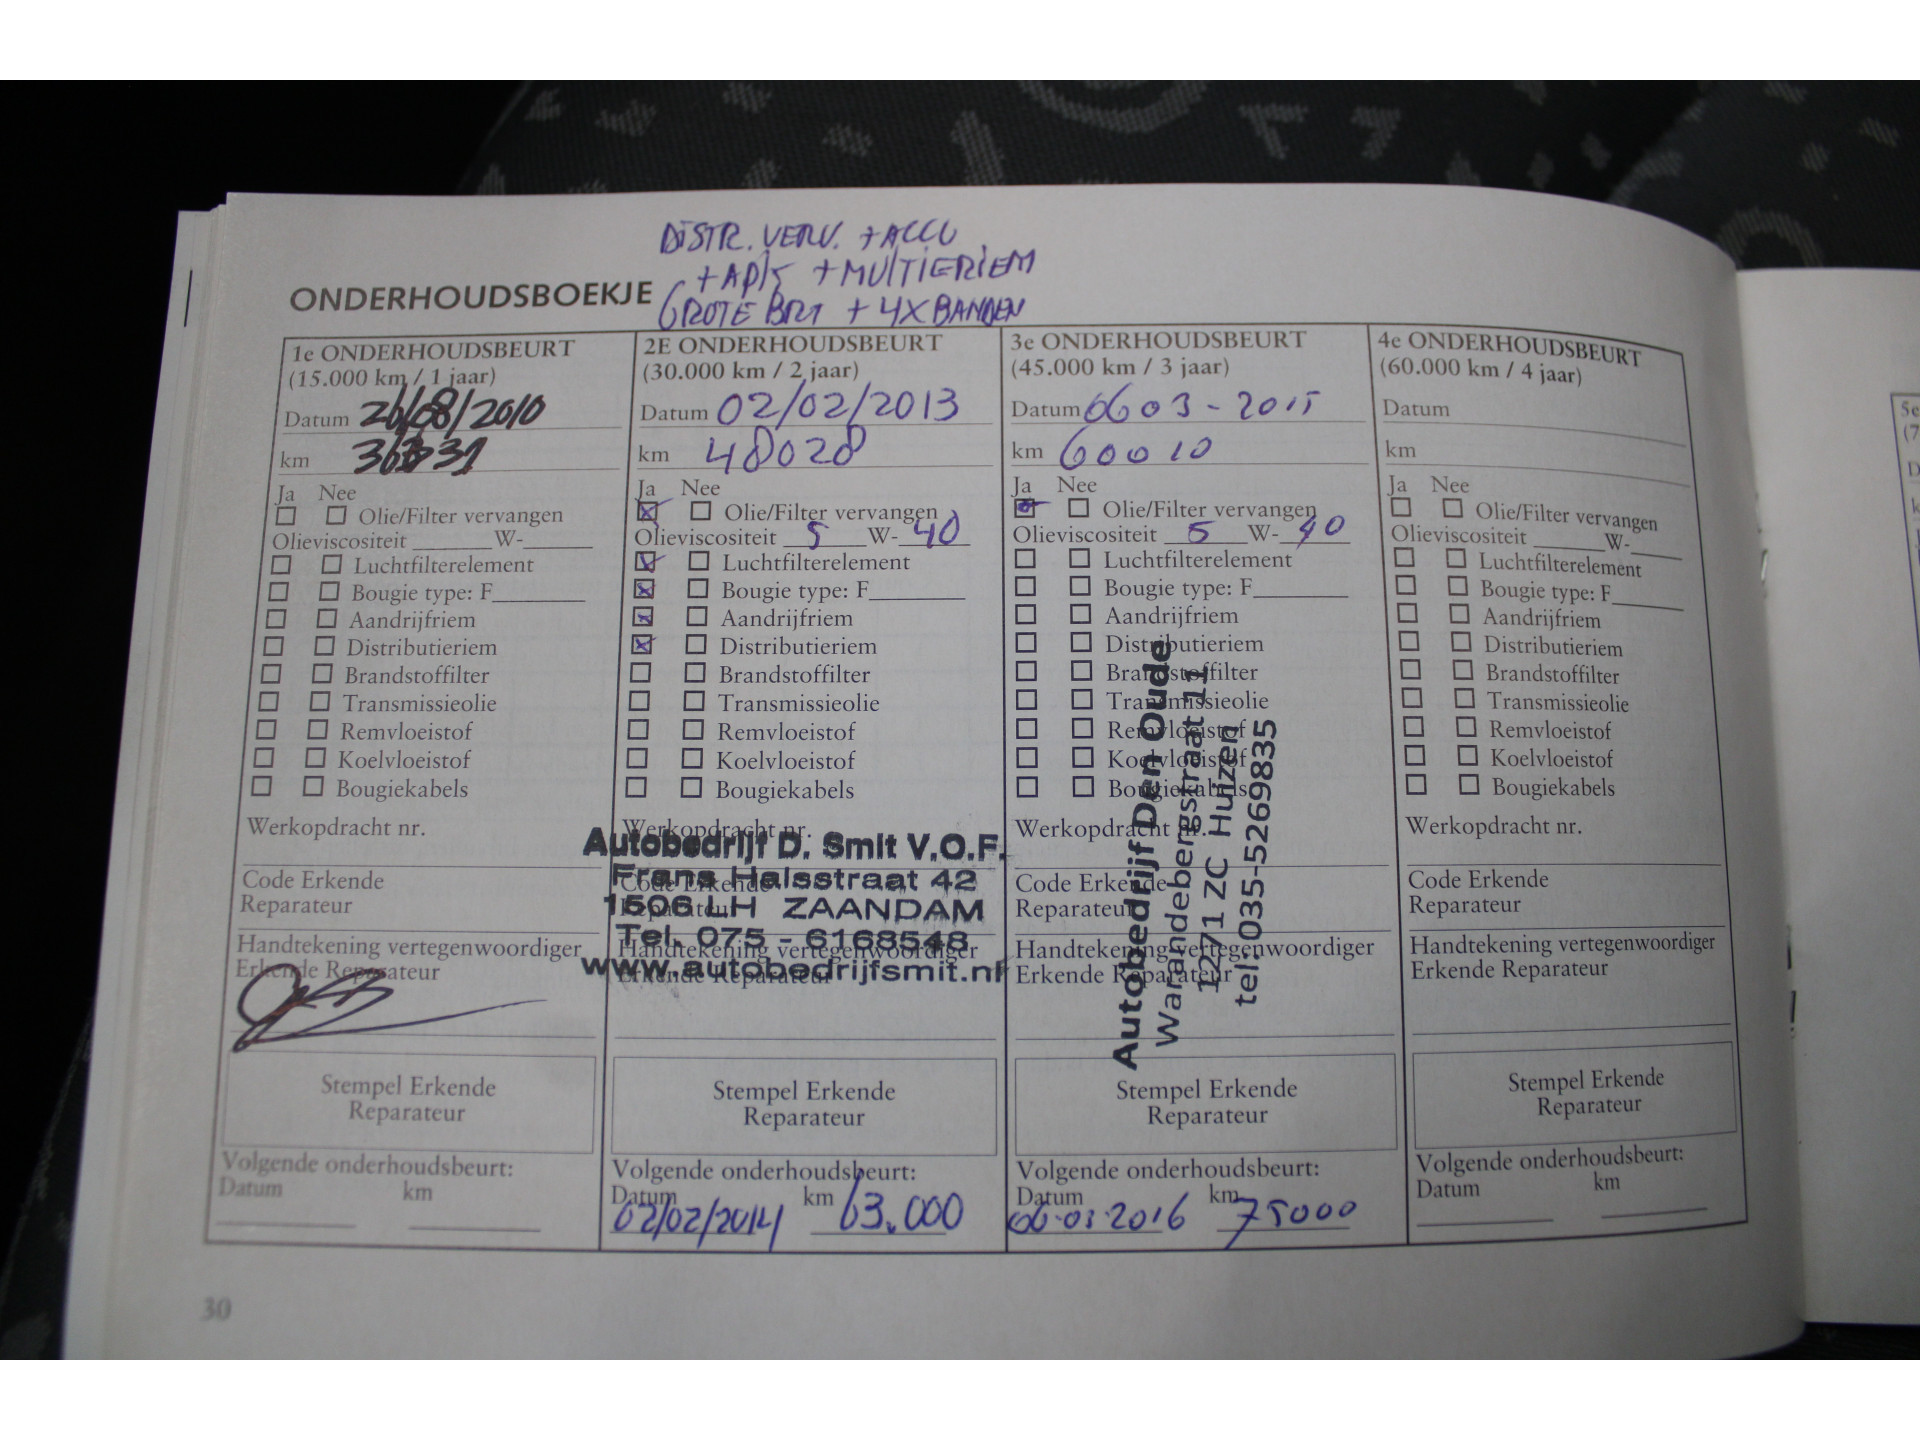 DISTR. VERV. + ACCU
+ APK + MULTIERIEM
ONDERHOUDSBOEKJE
GROTE BRT + 4X BANDEN
1e ONDERHOUDSBEURT
(15.000 km / 1 jaar)
Datum 26/08/2010
km
Ja Nee
Olie/Filter vervangen
Olieviscositeit ______W-______
Luchtfilterelement
Bougie type: F________
Aandrijfriem
Distributieriem
Brandstoffilter
Transmissieolie
Remvloeistof
Koelvloeistof
Bougiekabels
Werkopdracht nr.
Code Erkende
Reparateur
Handtekening vertegenwoordiger
Erkende Reparateur
Stempel Erkende
Reparateur
Volgende onderhoudsbeurt:
Datum km
2E ONDERHOUDSBEURT
(30.000 km / 2 jaar)
Datum 02/02/2013
km 48028
Ja Nee
Olie/Filter vervangen
Olieviscositeit 5 W- 40
Luchtfilterelement
Bougie type: F________
Aandrijfriem
Distributieriem
Brandstoffilter
Transmissieolie
Remvloeistof
Koelvloeistof
Bougiekabels
Werkopdracht nr.
Autobedrijf D. Smit V.O.F.
Frans Halsstraat 42
Code Erkende
Reparateur
1506 LH ZAANDAM
Tel. 075 - 6168548
Handtekening vertegenwoordiger
www.autobedrijfsmit.nl
Erkende Reparateur
Stempel Erkende
Reparateur
Volgende onderhoudsbeurt:
Datum km
02/02/2014 63.000
3e ONDERHOUDSBEURT
(45.000 km / 3 jaar)
Datum 06 03 - 2015
km 60010
Ja Nee
Olie/Filter vervangen
Olieviscositeit 5 W- 40
Luchtfilterelement
Bougie type: F________
Aandrijfriem
Distributieriem
Brandstoffilter
Transmissieolie
Remvloeistof
Koelvloeistof
Bougiekabels
Werkopdracht nr.
Code Erkende
Reparateur
Handtekening vertegenwoordiger
Erkende Reparateur
Autobedrijf Den Oude
Warandebergstraat 11
1271 ZC Huizen
tel: 035-5269835
Stempel Erkende
Reparateur
Volgende onderhoudsbeurt:
Datum km
06-03-2016 75000
4e ONDERHOUDSBEURT
(60.000 km / 4 jaar)
Datum
km
Ja Nee
Olie/Filter vervangen
Olieviscositeit ______W-______
Luchtfilterelement
Bougie type: F________
Aandrijfriem
Distributieriem
Brandstoffilter
Transmissieolie
Remvloeistof
Koelvloeistof
Bougiekabels
Werkopdracht nr.
Code Erkende
Reparateur
Handtekening vertegenwoordiger
Erkende Reparateur
Stempel Erkende
Reparateur
Volgende onderhoudsbeurt:
Datum km
30
5e
(7